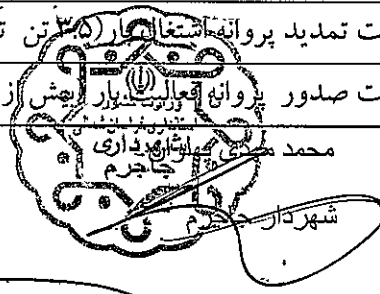 ت تمدید پروانه اشتغال بار (۳.۵ تن
ت صدور پروانه فعالیت بار بیش از
محمد مهدی
شهرداری
جاجرم
شهردار جاجرم